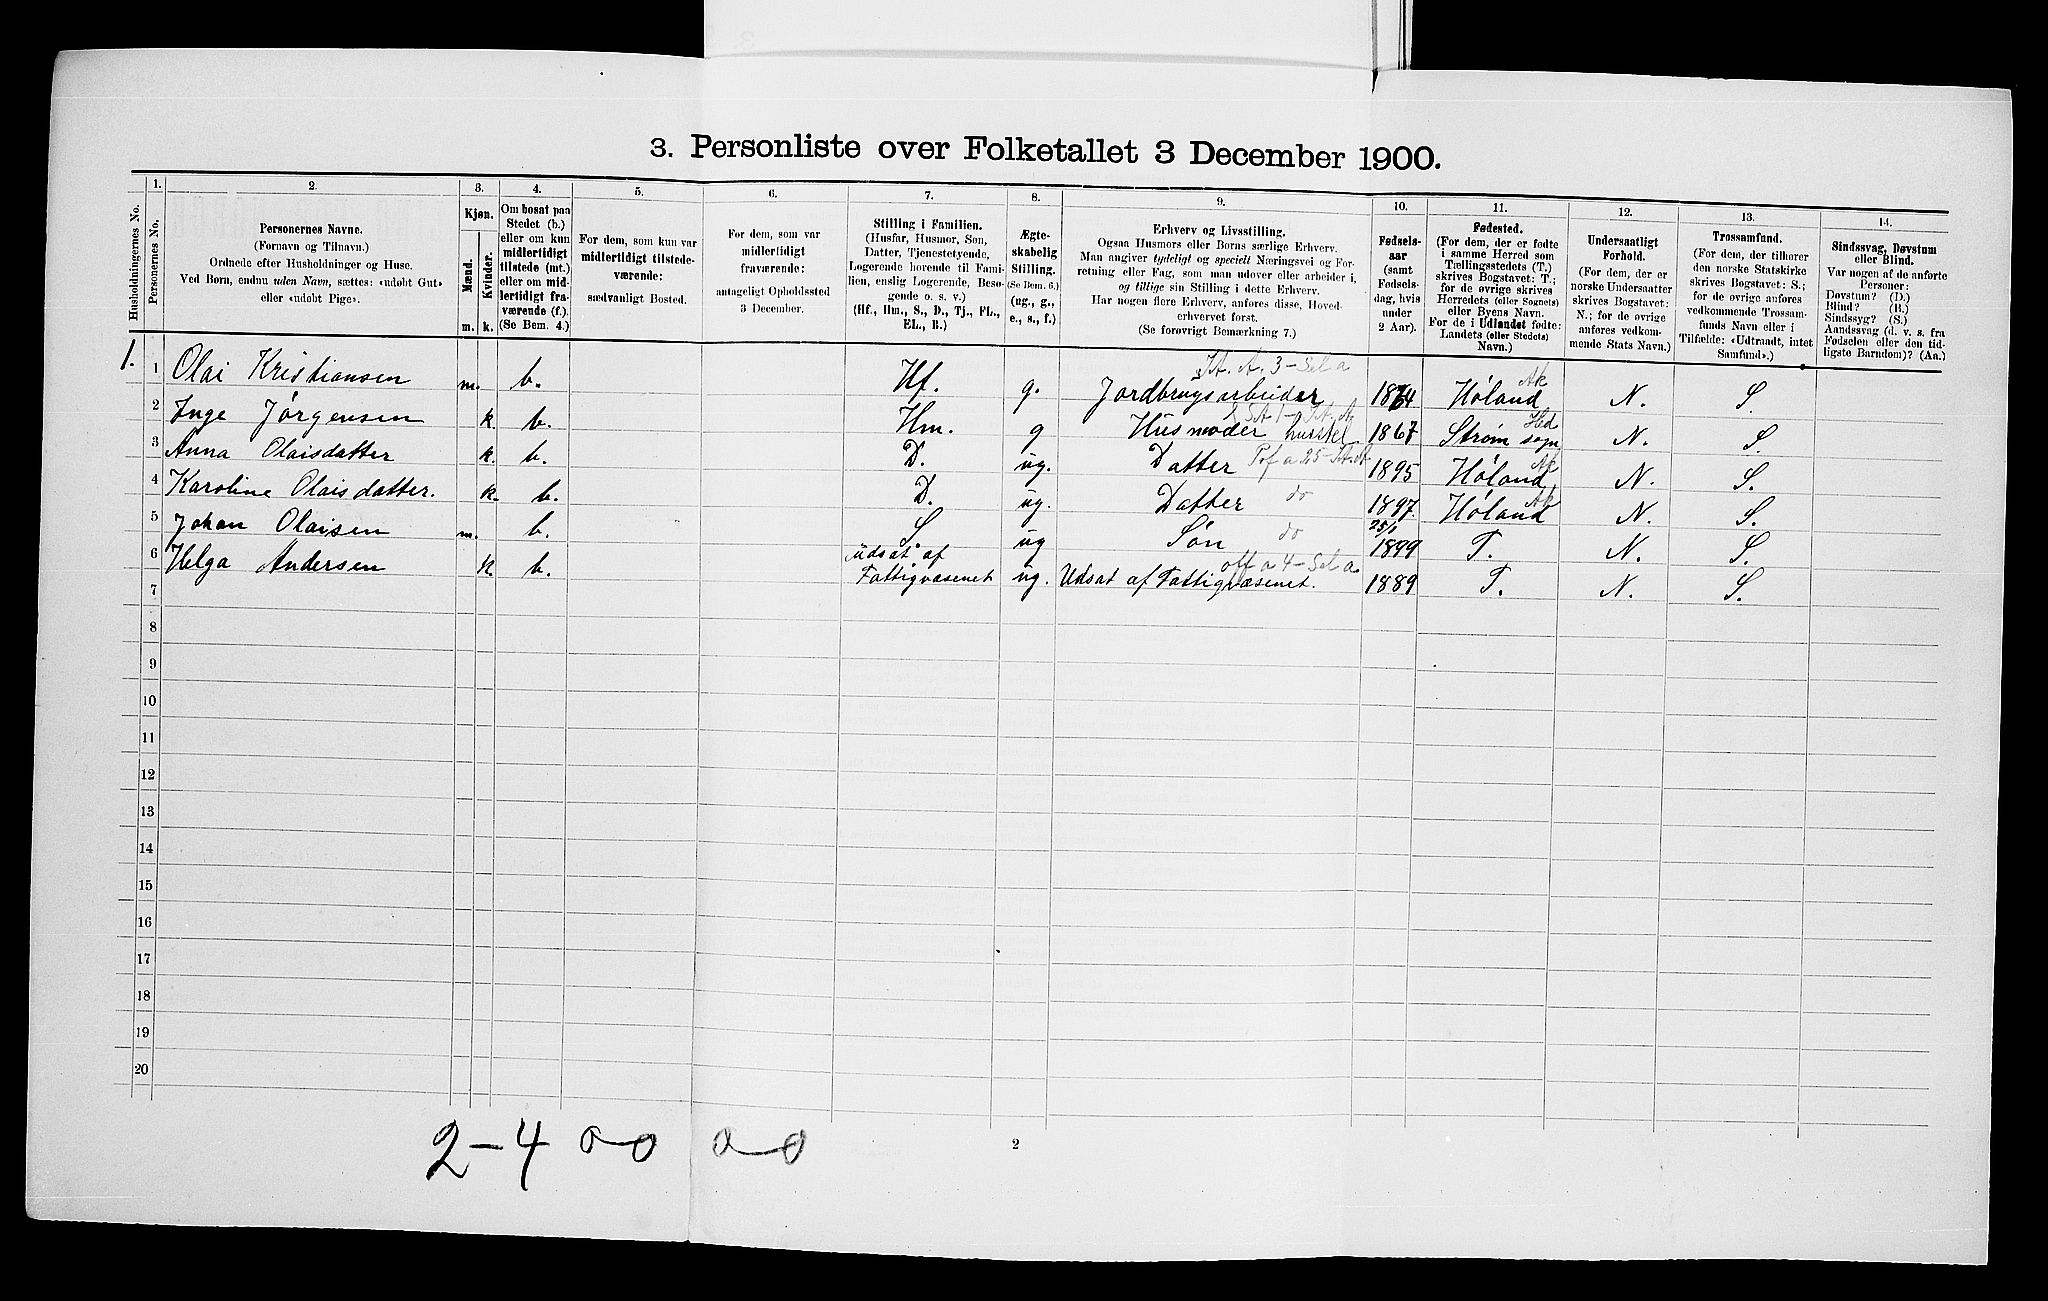 3. Personliste over Folketallet 3 December 1900.
Husholdningernes No.
1.
Personernes No.
2.
Personernes Navne.
(Fornavn og Tilnavn.)
Ordnede efter Husholdninger og Huse.
Ved Børn, endnu uden Navn, sættes: «udøbt Gut»
eller «udøbt Pige».
3.
Kjøn.
Mænd.
Kvinder.
m. k.
4.
Om bosat paa
Stedet (b.)
eller om kun
midlertidigt
tilstede (mt.)
eller om mid-
lertidigt fra-
værende (f.).
(Se Bem. 4.)
5.
For dem, som kun var
midlertidigt tilstede-
værende:
sædvanligt Bosted.
6.
For dem, som var
midlertidigt
fraværende:
antageligt Opholdssted
3 December.
7.
Stilling i Familien.
(Husfar, Husmor, Søn,
Datter, Tjenestetyende,
Logerende hørende til Fami-
lien, enslig Logerende, Besø-
gende o. s. v.)
(Hf., Hm., S., D., Tj., FL.,
EL., B.)
8.
Ægte-
skabelig
Stilling.
(Se Bem. 6.)
(ug., g.,
e., s., f.)
9.
Erhverv og Livsstilling.
Ogsaa Husmors eller Børns særlige Erhverv.
Man angiver tydeligt og specielt Næringsvei og For-
retning eller Fag, som man udøver eller arbeider i,
og tillige sin Stilling i dette Erhverv.
Har nogen flere Erhverv, anføres disse, Hoved-
erhvervet først.
(Se forøvrigt Bemærkning 7.)
10.
Fødsels-
aar
(samt
Fødsels-
dag, hvis
under
2 Aar).
11.
Fødested.
(For dem, der er fødte
i samme Herred som
Tællingsstedets (T.)
skrives Bogstavet: T.;
for de øvrige skrives
Herredets (eller Sognets)
eller Byens Navn.
For de i Udlandet fødte:
Landets (eller Stedets)
Navn.)
12.
Undersaatligt
Forhold.
(For dem, der er
norske Undersaatter
skrives Bogstavet:
N.; for de øvrige
anføres vedkom-
mende Stats Navn.)
13.
Trossamfund.
(For dem, der tilhører
den norske Statskirke
skrives Bogstavet: S.;
for de øvrige anføres
vedkommende Trossam-
funds Navn eller i
Tilfælde: «Udtraadt, intet
Samfund».)
14.
Sindssvag, Døvstum
eller Blind.
Var nogen af de anførte
Personer:
Døvstum? (D.)
Blind? (B.)
Sindssyg? (S.)
Aandssvag (d. v. s. fra
Fødselen eller den tid-
ligste Barndom)? (Aa.)
1. 1 Olai Kristiansen m. b. Hf. g. Jordbrugsarbeider 1864 Høland Ak N. S.
2 Inge Jörgensen k. b. Hm. g Husmoder husstel 1867 Strøm sogn Hed N. S.
3 Anna Olaisdatter k. b. D. ug. Datter 1895 Høland Ak N. S.
4 Karoline Olaisdatter. k. b. D. ug. Datter do 1897 Høland Ak N. S.
5 Johan Olaisen m. b. S ug Søn do 25/1 1899 T. N. S.
6 Helga Andersen k. b. udsat af Fattigvæsenet ug. Udsat af Fattigvæsenet. 1889 T. N. S.
7
8
9
10
11
12
13
14
15
16
17
18
19
20
2-4 0-0 0-0
2